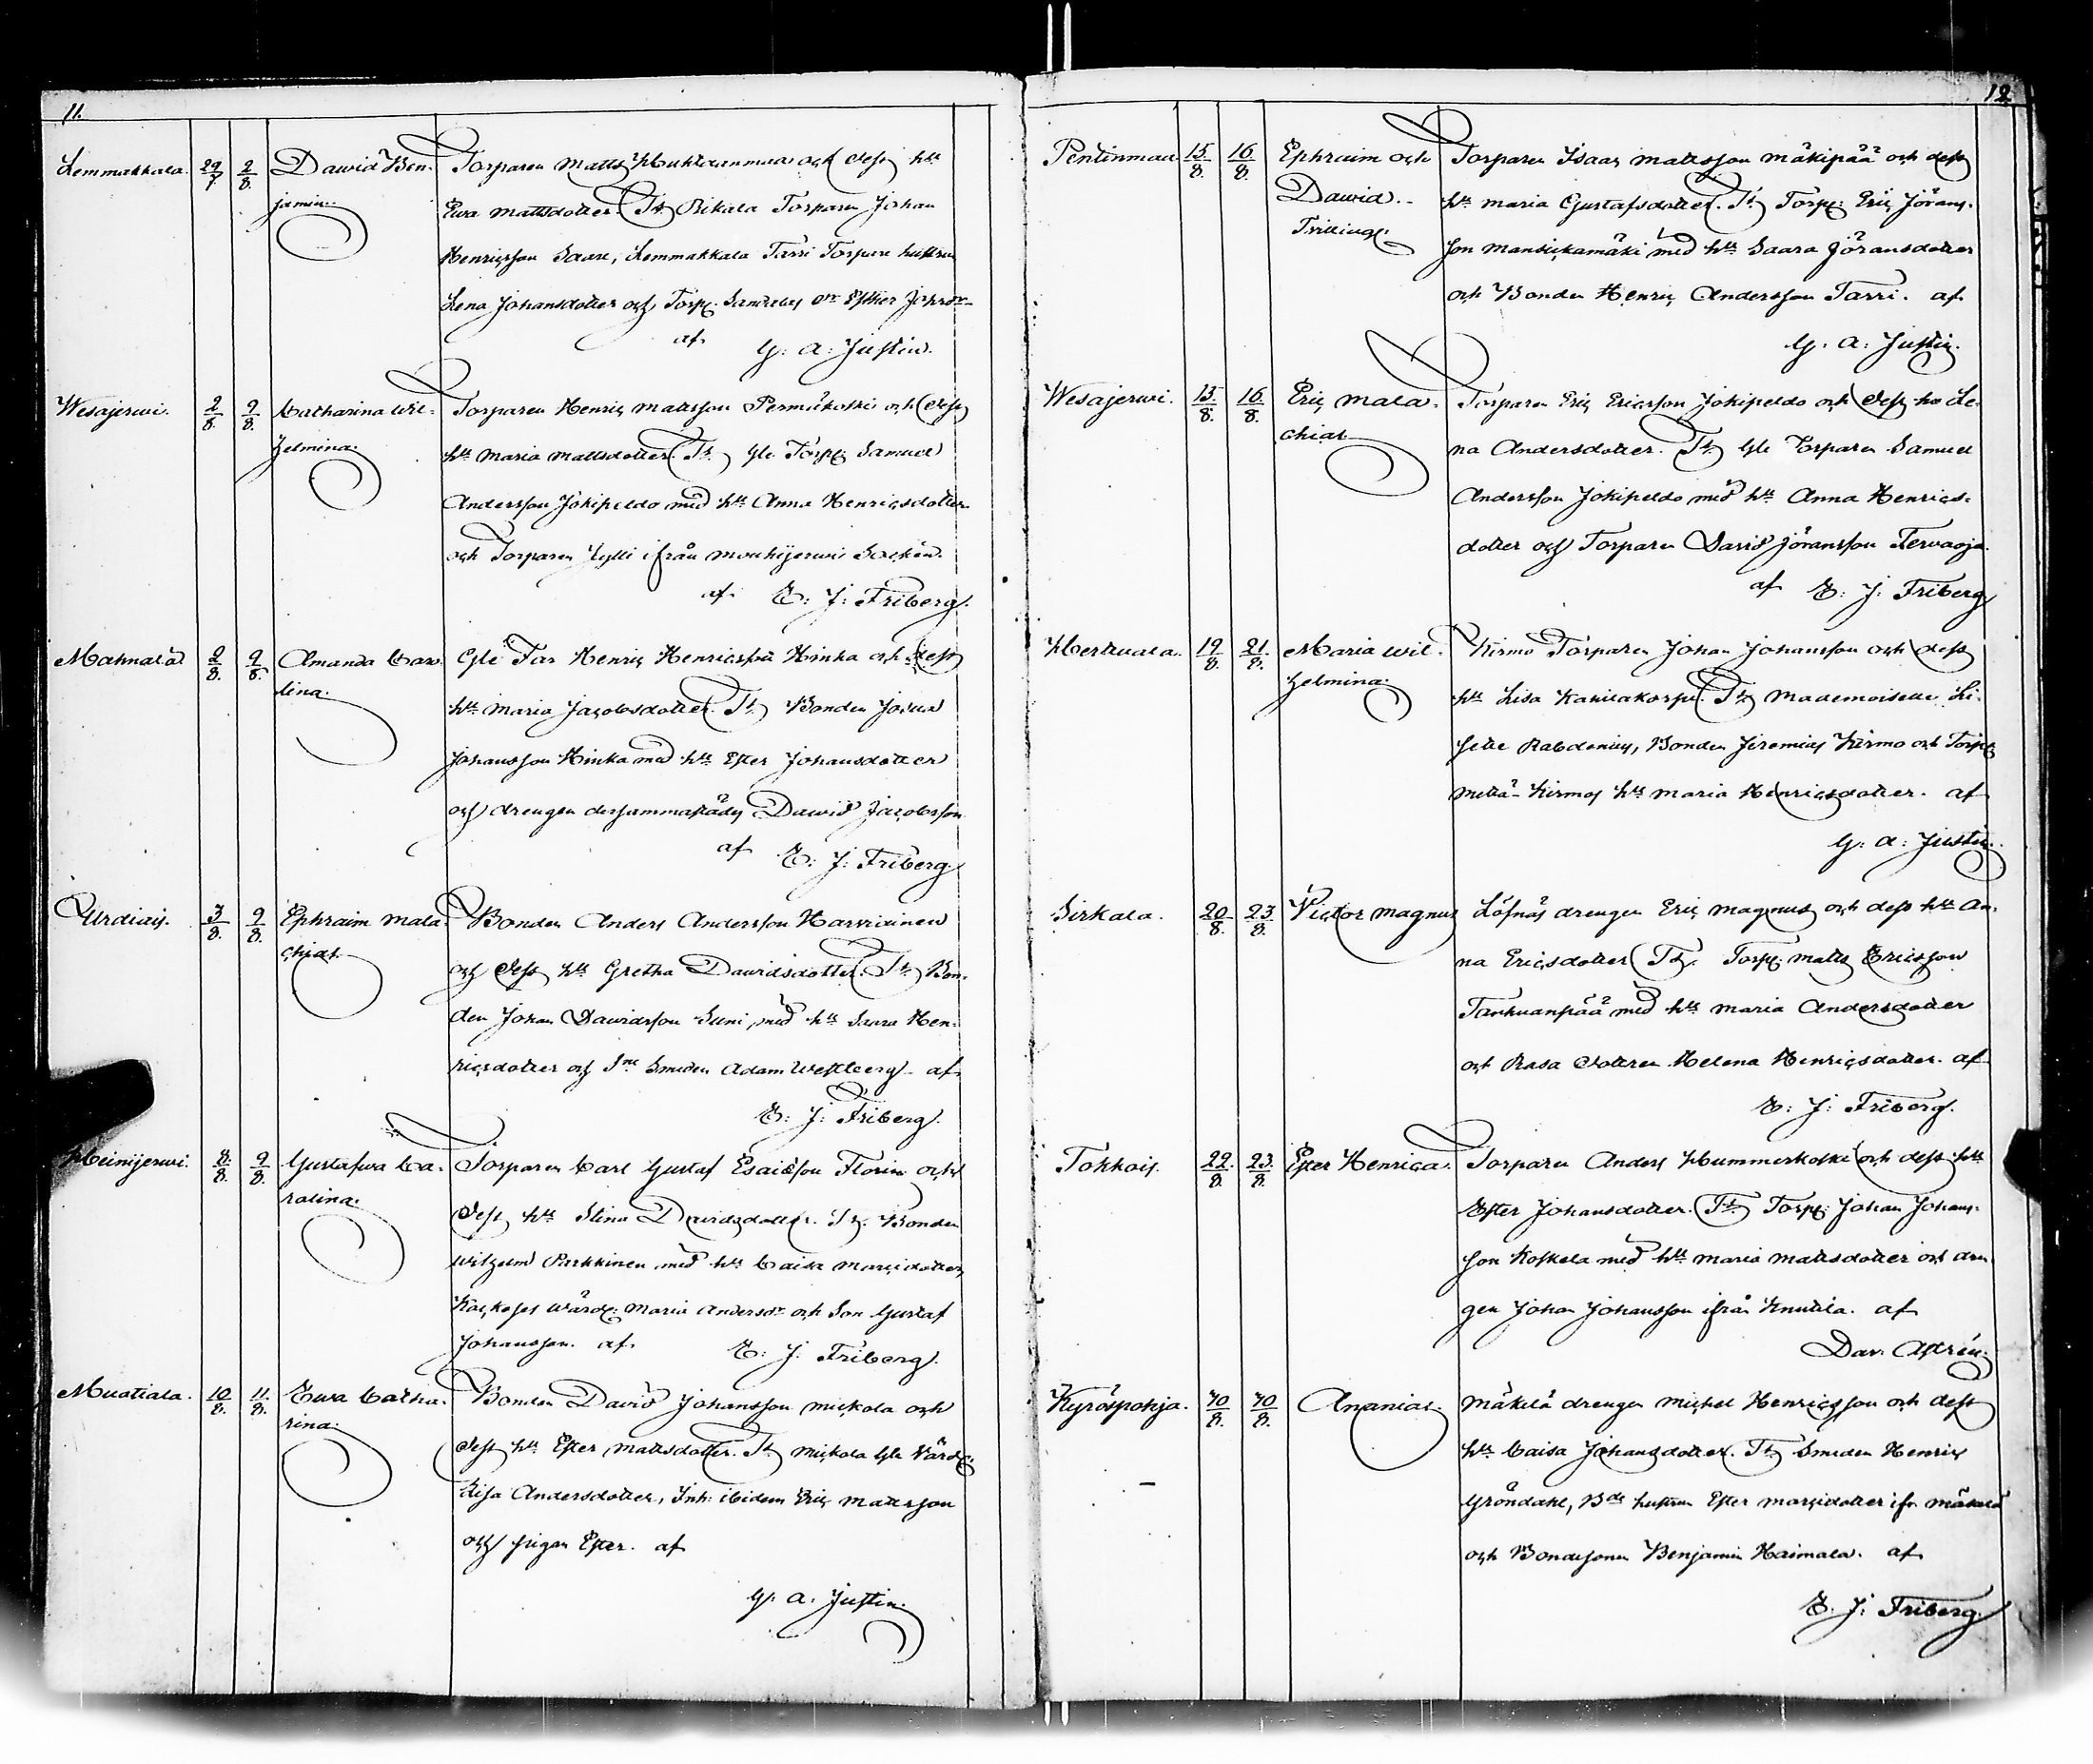 11.
Lemmakkala. 29/7 2/8. Dawid Ben- Torparen Matts och dess hu
jamin. Ewa Mattsdotter. Tt. Rikala Torparen Johan
Henricsson Saari, Lemmakkala Tarri Torpare hustrun
Lena Johansdotter och Torp: Esther Johsdr
af G: A: Justin.
Wesajerwi. 2/8. 9/8. Catharina Wil- Torparen Henric Mattsson Permäkoski och dess
helmina. hu Maria Mattsdotter. Tt. Gle Torp: Samuel
Andersson Jokipeldo med hu Anna Henricsdotter
och Torparen Hylli ifrån Mouhijerwi Socken.
af E: J: Friberg.
Mahnalä 2/8. 9/8. Amanda Caro- Gle Henric Henricsson Hinka och dess
lina. hu Maria Jacobsdotter. Tt. Bonden Josua
Johansson Hinka med hu Ester Johansdotter
och drengen dersammastädes Dawid Jacobsson
af E: J: Friberg.
Urdiais. 3/8. 9/8. Ephraim Mala- Bonden Anders Andersson Harviainen
chias. och dess hu Gretha Dawidsdotter. Tt. Bon-
den Johan Dawidsson Suni, med hu Saara Hen-
ricsdotter och Smeden Adam Westberg af
E: J: Friberg.
Heinijerwi. 8/8. 9/8. Gustafwa Ca- Torparen Carl Gustaf Esaiesson Florin och
rolina. dess hu Stina Dawidsdotter. Tt. Bonden
Wilhelm Parkkinen med hu Caisa Marcidotter,
Wärd: Maria Andersdr och Son Gustaf
Johansson. af E: J: Friberg.
Muotiala. 10/8. 11/8. Ewa Catha- Bonden David Johansson Mickola och
rina. dess hu Ester Mattsdotter. Tt. Mickola Gle Värd:
Lisa Andersdotter, Inh: ibidem Eric Mattsson
och pigan Ester. af
G. A. Justin.
12
Pentinmaa 15/8. 16/8. Ephraim och Torparen Isaac Mattsson Mäkipää och dess
Dawid. hu Maria Gustafsdotter. Tt. Torp: Eric Jörans-
Trillingr. son Mansickamäki med hu Saara Göransdotter
och Bonden Henric Andersson Tarri. af
G. A: Justin.
Wesajerwi. 15/8. 16/8. Eric Mala- Torparen Eric Ericsson Jokipeldo och dess hu Le-
chias. na Andersdotter. Tt. Gle Torparen Samuel
Andersson Jokipeldo med hu Anna Henrics-
dotter och Torparen David Jöransson Tervaoja.
af E: J. Friberg
Herttuala. 19/8. 21/8. Maria Wil- Kirmo Torparen Johan Johansson och dess
helmina. hu Lisa Tt. Mademoiselle Li-
sette Rabdenius, Bonden Jeremias Kirmo och Torp:
Mettä-Kirmos hu Maria Henricsdotter. af
G: A: Justin.
Sirkala. 20/8. 23/8. Victor Magnus Löfnäs drengen Eric Magnus och dess hu An-
na Ericsdotter. Tt. Torp: Matts Ericsson
Tanhuanpää med hu Maria Andersdotter
och Rasa dottren Helena Henricsdotter. af
E: J: Friberg.
Tokkois. 22/8. 23/8. Ester Henrica. Torparen Anders Hummerkoski och dess hu
Ester Johansdotter. Tt. Torp: Johan Johans-
son Koskela med hu Maria Mattsdotter och dren-
gen Johan Johansson ifrån Knuttila. af
Dav. Astrén.
Kyröspohja. 30/8. 30/8. Ananias. Mäkelä drengen Michel Henricsson och dess
hu Caisa Johansdotter. Tt. Smeden Henric
Gröndahl, Bde hustrun Ester Marcidotter ifr. Mäkelä
och Bondesonen Benjamin Haimala. af
E. J: Friberg.